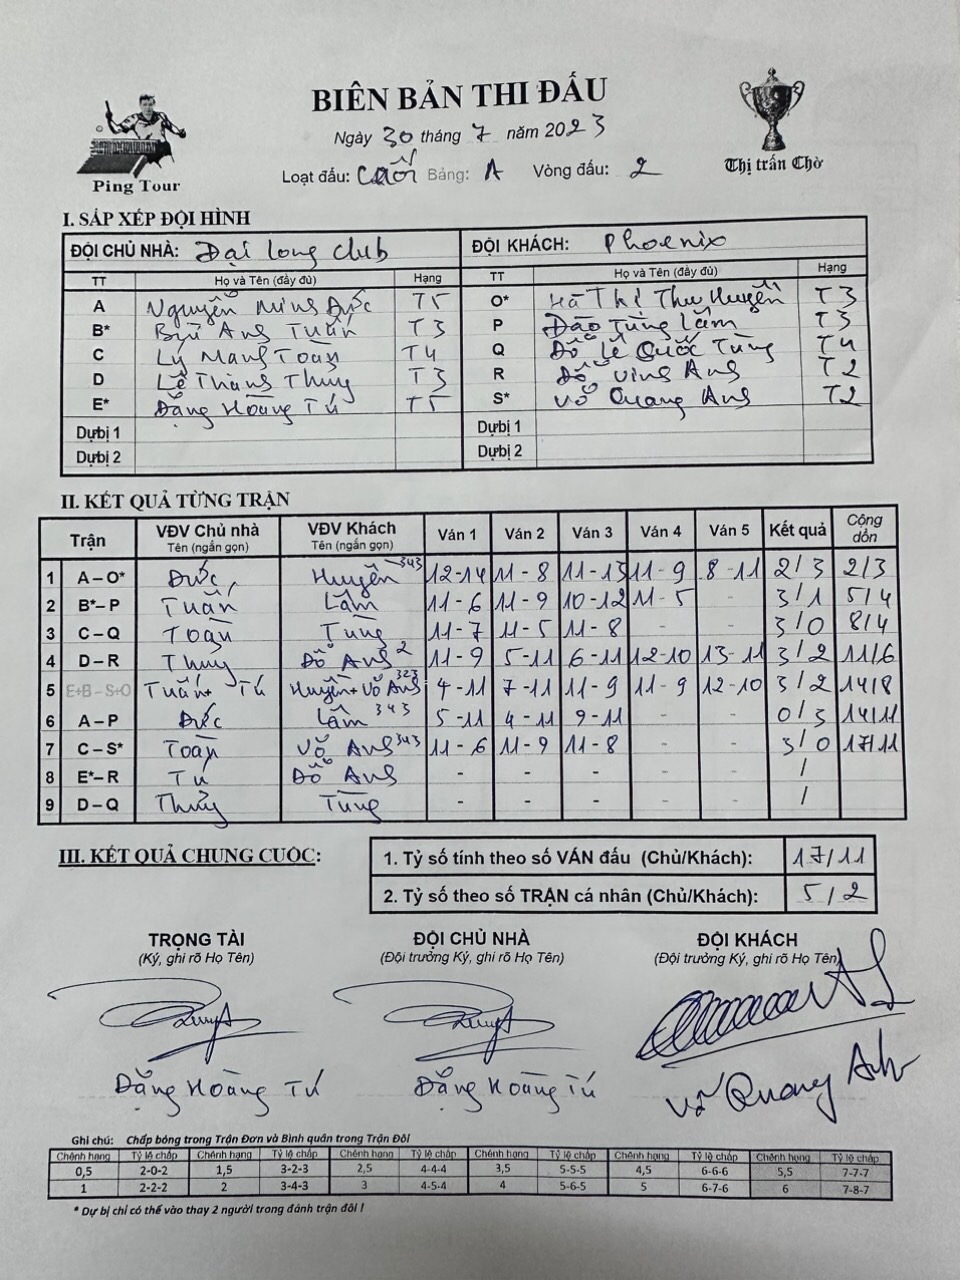 BIÊN BẢN THI ĐẤU
Ngày 30 tháng 7 năm 2023
Ping Tour
Loạt đấu: Cuối Bảng: A Vòng đấu: 2
Thị trấn Chờ
I. SẮP XẾP ĐỘI HÌNH
ĐỘI CHỦ NHÀ: Đại Long Club ĐỘI KHÁCH: Phoenix
TT Họ và Tên (đầy đủ) Hạng TT Họ và Tên (đầy đủ) Hạng
A Nguyễn Minh Đức T5 O* Hà Thị Thu Huyền T3
B* Bùi Anh Tuấn T3 P Đào Tùng Lâm T3
C Lý Mạnh Toàn T4 Q Đỗ Lê Quốc Tùng T4
D Lê Thanh Thuỷ T3 R Đỗ Vinh Anh T2
E* Đặng Hoàng Tú T5 S* Võ Quang Anh T2
Dự bị 1 Dự bị 1
Dự bị 2 Dự bị 2
II. KẾT QUẢ TỪNG TRẬN
Trận VĐV Chủ nhà Tên (ngắn gọn) VĐV Khách Tên (ngắn gọn) Ván 1 Ván 2 Ván 3 Ván 4 Ván 5 Kết quả Cộng dồn
1 A – O* Đức Huyền 343 12-14 11-8 11-13 11-9 8-11 2/3 2/3
2 B*– P Tuấn Lâm 11-6 11-9 10-12 11-5 - 3/1 5/4
3 C – Q Toàn Tùng 11-7 11-5 11-8 - - 3/0 8/4
4 D – R Thuỷ Đỗ Anh 2 11-9 5-11 6-11 12-10 13-11 3/2 11/6
5 E+B – S+O Tuấn+ Tú Huyền+Võ Anh 323 4-11 7-11 11-9 11-9 12-10 3/2 14/8
6 A – P Đức Lâm 343 5-11 4-11 9-11 - - 0/3 14/11
7 C – S* Toàn Võ Anh 343 11-6 11-9 11-8 - - 3/0 17/11
8 E*– R Tú Đỗ Anh - - - - - /
9 D – Q Thuỷ Tùng - - - - - /
III. KẾT QUẢ CHUNG CUỘC:
1. Tỷ số tính theo số VÁN đấu (Chủ/Khách): 17/11
2. Tỷ số theo số TRẬN cá nhân (Chủ/Khách): 5/2
TRỌNG TÀI ĐỘI CHỦ NHÀ ĐỘI KHÁCH
(Ký, ghi rõ Họ Tên) (Đội trưởng Ký, ghi rõ Họ Tên) (Đội trưởng Ký, ghi rõ Họ Tên)
Đặng Hoàng Tú Đặng Hoàng Tú Võ Quang Anh
Ghi chú: Chấp bóng trong Trận Đơn và Bình quân trong Trận Đôi
Chênh hạng Tỷ lệ chấp Chênh hạng Tỷ lệ chấp Chênh hạng Tỷ lệ chấp Chênh hạng Tỷ lệ chấp Chênh hạng Tỷ lệ chấp Chênh hạng Tỷ lệ chấp
0,5 2-0-2 1,5 3-2-3 2,5 4-4-4 3,5 5-5-5 4,5 6-6-6 5,5 7-7-7
1 2-2-2 2 3-4-3 3 4-5-4 4 5-6-5 5 6-7-6 6 7-8-7
* Dự bị chỉ có thể vào thay 2 người trong đánh trận đôi !